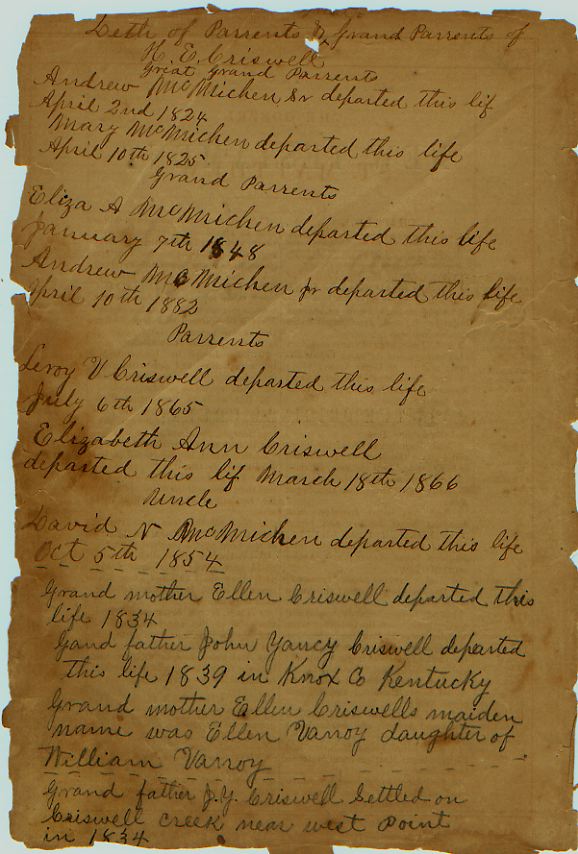 Deth of Parrents & Grand Parrents of
H. E. Criswell
Great Grand Parrents
Andrew McMichen Sr departed this lif
April 2nd 1824
Mary McMichen departed this life
April 10th 1825
Grand Parrents
Eliza A McMichen departed this life
January 7th 1848
Andrew McMichen Jr departed this life
April 10th 1882
Parrents
Leroy V Criswell departed this life
July 6th 1865
Elizabeth Ann Criswell
departed this lif March 18th 1866
Uncle
David N McMichen departed this life
Oct 5th 1854
Grand mother Ellen Criswell departed this
life 1834
Gand father John Yancy Criswell departed
this life 1839 in Knox Co Kentucky
Grand mother Ellen Criswells maiden
name was Ellen Vanoy daughter of
William Vanoy
Grand father J. Y. Criswell Settled on
Criswell creek near west Point
in 1834